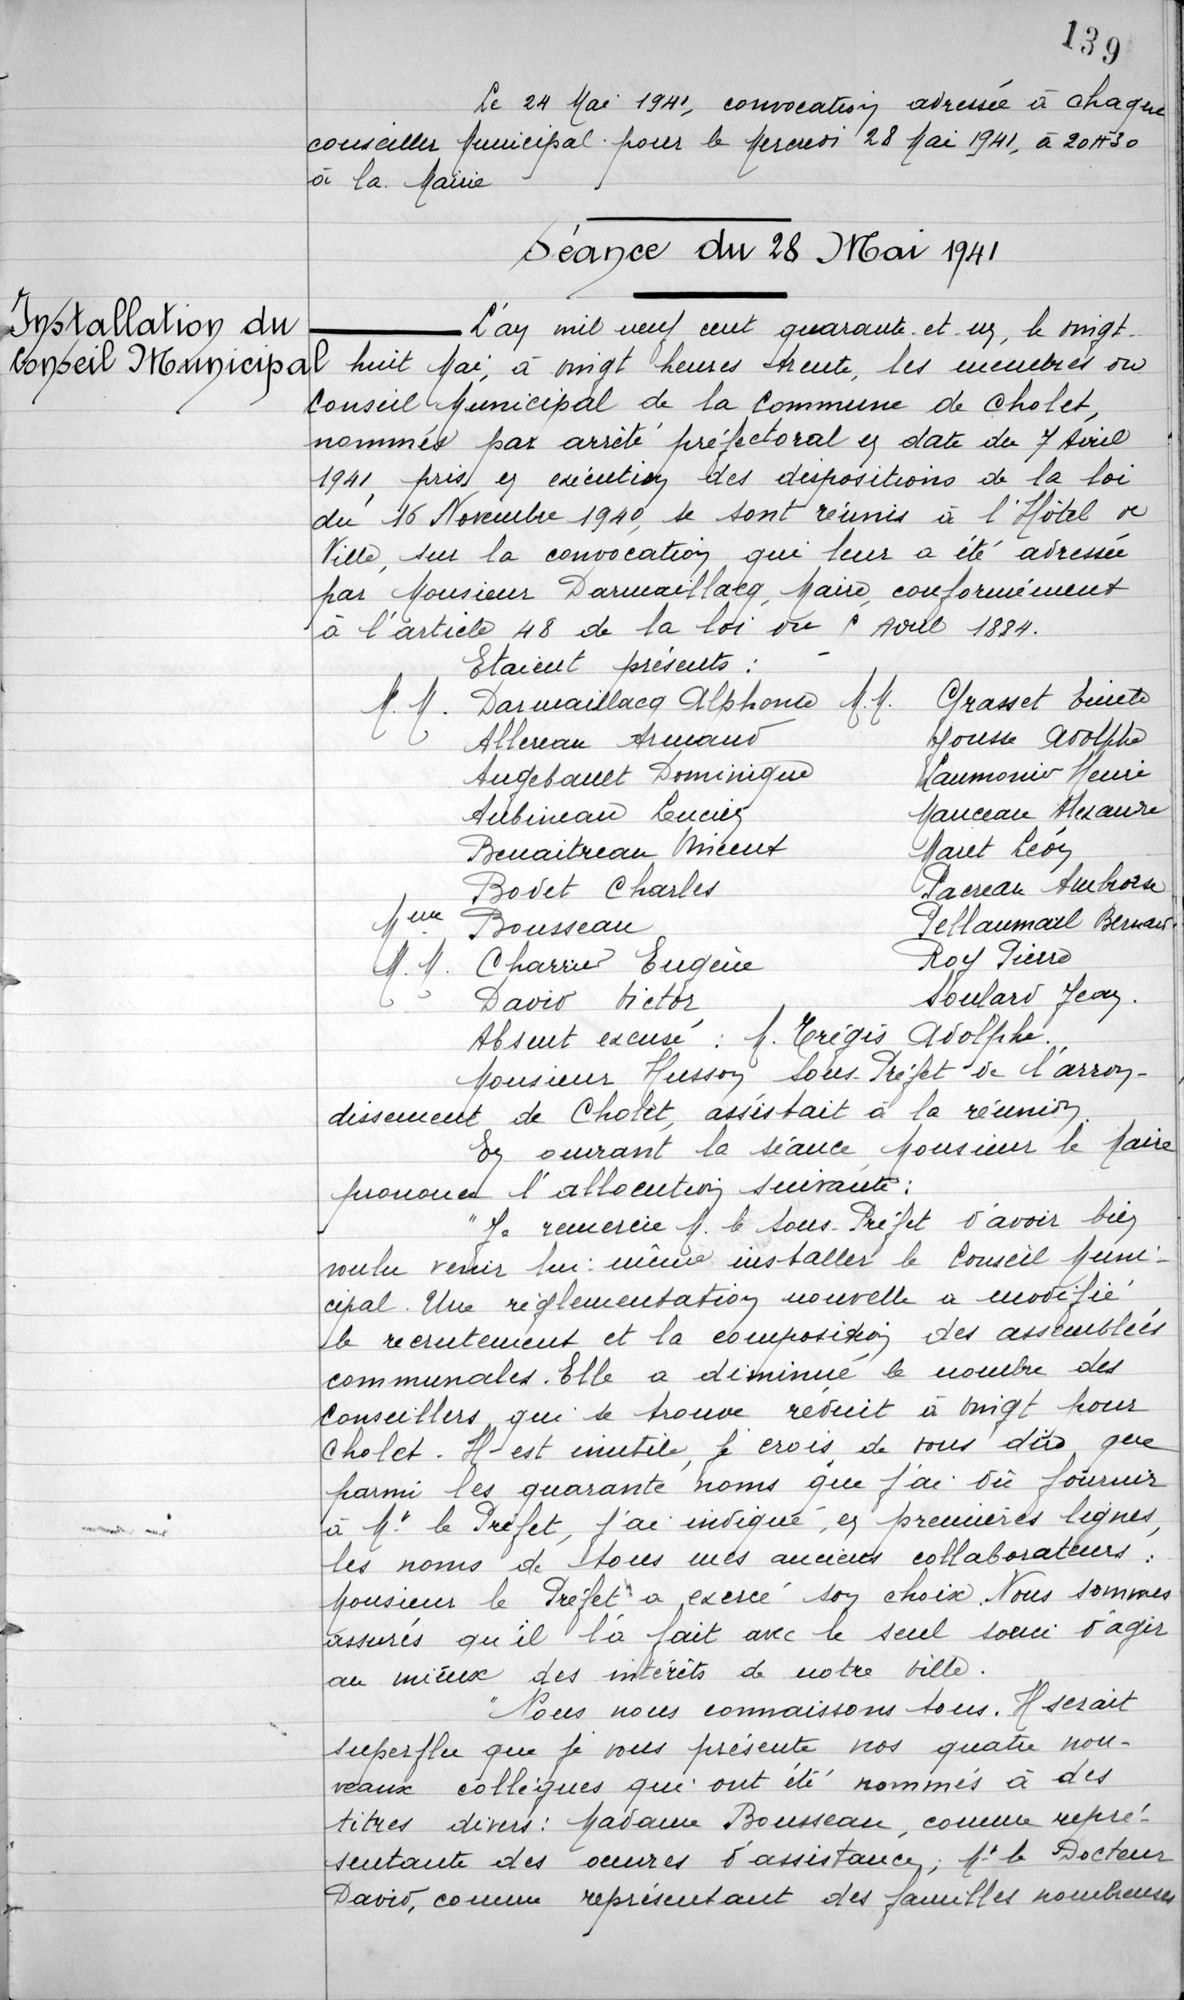 139
Le 24 Mai 1941, convocation adressée à chaque
conseiller Municipal pour le Mercredi 28 Mai 1941, à 20H30
à la Mairie
Séance du 28 Mai 1941
Installation du
Conseil Municipal
L'an mil neuf cent quarante-et-un, le vingt-
huit Mai, à vingt heures trente, les membres du
Conseil Municipal de la Commune de Cholet,
nommés par arrêté préfectoral en date du 7 Avril
1941, pris en exécution des dispositions de la loi
du 16 Novembre 1940, se sont réunis à l'Hôtel de
Ville, sur la convocation qui leur a été adressée
par Monsieur Darmaillacq, Maire, conformément
à l'article 48 de la loi du 5 Avril 1884.
Etaient présents :
M.M. Darmaillacq Alphonse M.M. Grasset
Allereau Armand Jousse Adolphe
Augebault Dominique Laumonier Henri
Aubineau Lucien Manceau Alexandre
Benaitreau Vincent Maret Léon
Bodet Charles Pacreau Ambroise
Mme Bousseau Pellaumail Bernard
M.M. Charrier Eugène Roy Pierre
David Victor Soulard Jean.
Absent excusé : M. Trégis Adolphe.
Monsieur Husson Sous-Préfet de l'arron-
dissement de Cholet, assistait à la réunion.
En ouvrant la séance, Monsieur le Maire
prononce l'allocution suivante :
"Je remercie M. le Sous-Préfet d'avoir bien
voulu venir lui-même installer le Conseil Muni-
cipal. Une réglementation nouvelle a modifié
le recrutement et la composition des assemblées
communales. Elle a diminué le nombre des
Conseillers qui se trouve réduit à vingt pour
Cholet. Il est inutile, je crois, de vous dire que
parmi les quarante noms que j'ai dû fournir
à Mr le Préfet, j'ai indiqué, en premières lignes,
les noms de tous mes anciens collaborateurs :
Monsieur le Préfet a exercé son choix. Nous sommes
assurés qu'il l'a fait avec le seul souci d'agir
au mieux des intérêts de notre ville.
"Nous nous connaissons tous. Il serait
superflu que je vous présente nos quatre nou-
veaux collègues qui ont été nommés à des
titres divers : Madame Bousseau, comme repré-
sentante des oeuvres d'assistance ; Mr le Docteur
David, comme représentant des familles nombreuses